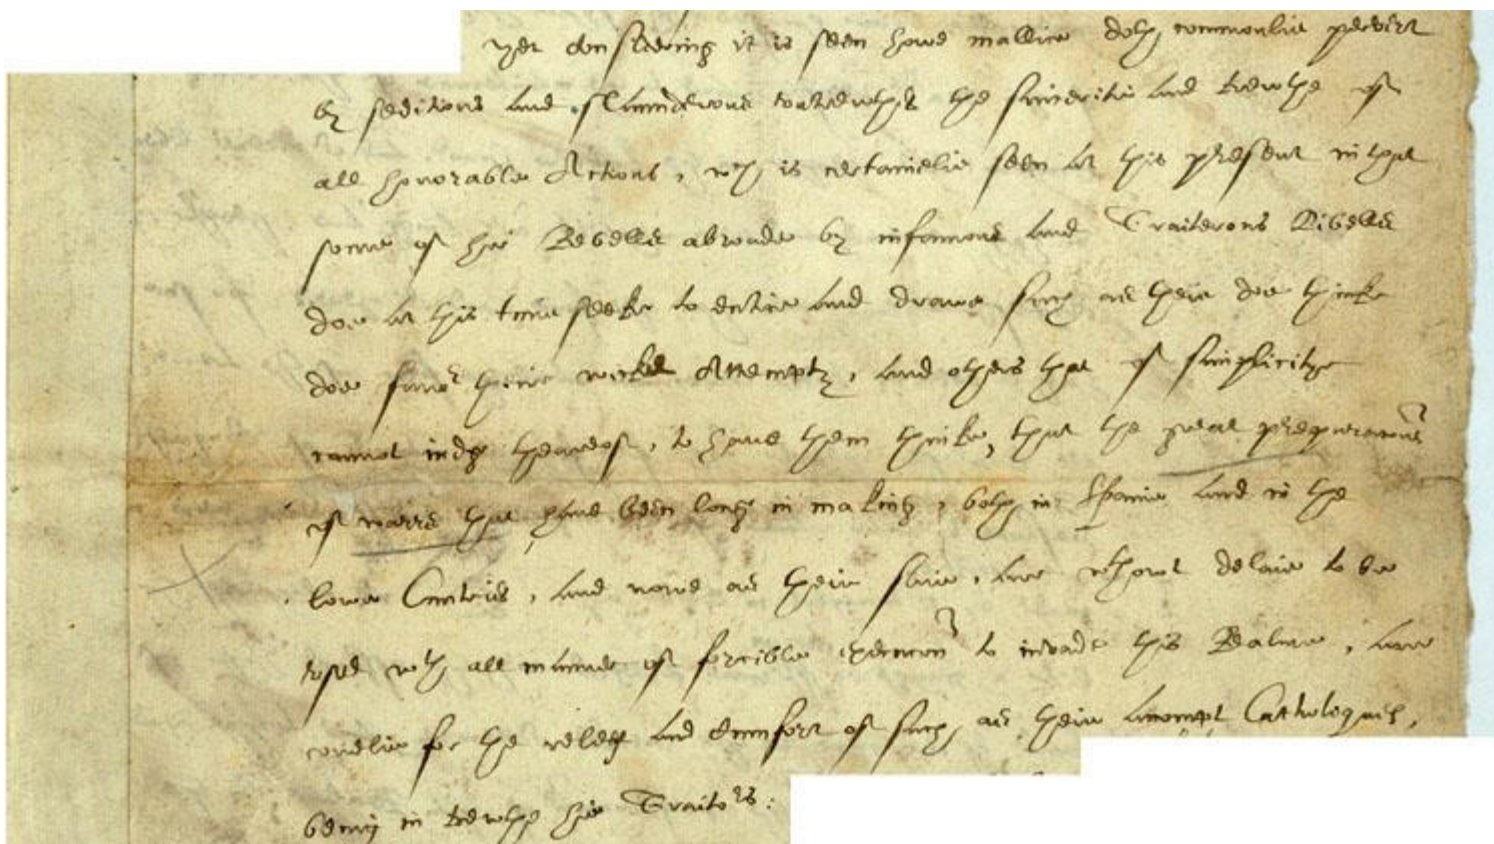 yet considering it is seen howe mallice doth commonlie pervert
by seditious and slaunderous untrewthes the sinceritie and trewthe of
all honorable Actions, wch is certainelie seen at this present in that
some of hir Rebelles abroade by infamous and Traiterous Libells
doe at this time seeke to entice and drawe such as their doe thinke
doe favor theire wicked Attemptes, and others that of simplicitye
cannot iudge theareof, to have them thinke, that the great preparacons
of warre that have been long in making, both in Spaine and in the
lowe Contries, and nowe as their saie, are wthout delaie to be
used wth all manner of forcible execucon to invade this Realme, are
onelie for the releef and comfort of such, as their accompt Catholiques,
being in trewthe hir Traitors: